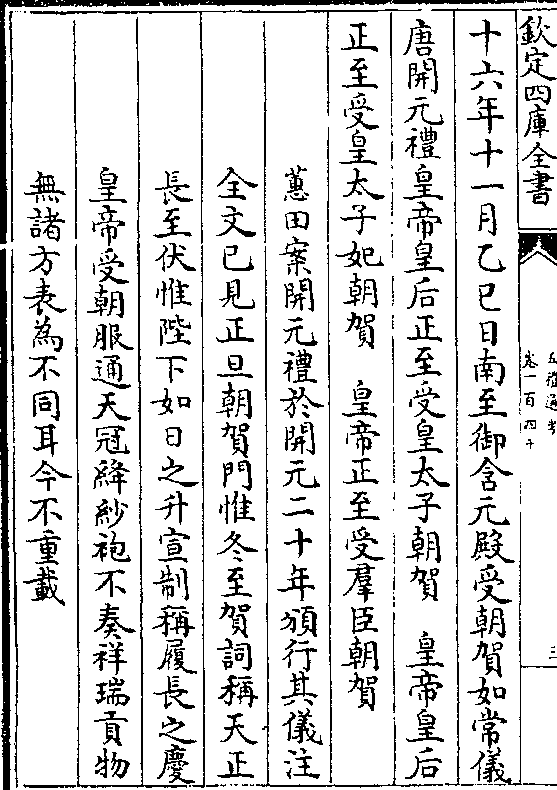 欽定四庫全書
五禮通考
卷一百四十
三
十六年十一月乙巳日南至御含元殿受朝賀如常儀
唐開元禮皇帝皇后正至受皇太子朝賀　皇帝皇后
正至受皇太子妃朝賀　皇帝正至受羣臣朝賀
蕙田案開元禮於開元二十年頒行其儀注
全文已見正旦朝賀門惟冬至賀詞稱天正
長至伏惟陛下如日之升宣制稱履長之慶
皇帝受朝服通天冠絳紗袍不奏祥瑞貢物
無諸方表為不同耳今不重載